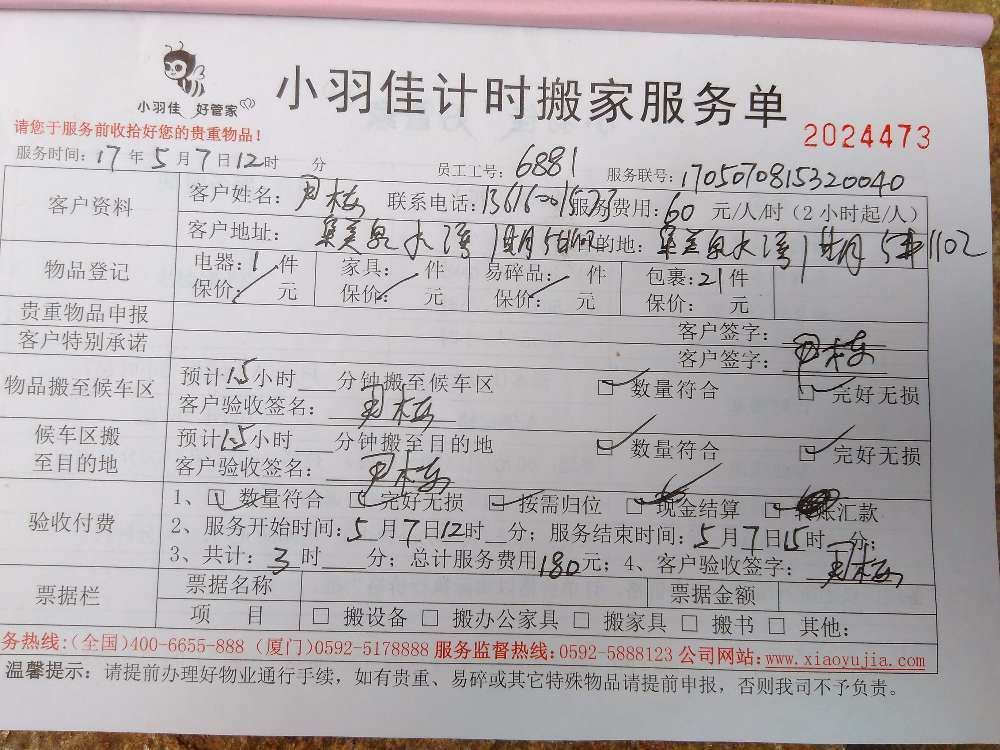 小羽佳 好管家
小羽佳计时搬家服务单
请您于服务前收拾好您的贵重物品！
2024473
服务时间：17年5月7日12时 分 员工工号：6881 服务联号：1705070815320040
客户资料 客户姓名： 联系电话： 服务费用：60元/人/时（2小时起/人）
客户地址： 集美泉水湾1期 的地：集美泉水湾1期5#1102
物品登记 电器：1件 家具： 件 易碎品： 件 包裹：21件
保价： 元 保价： 元 保价： 元 保价： 元
贵重物品申报 客户签字：
客户特别承诺 客户签字：
物品搬至候车区 预计1.5小时 分钟搬至候车区 数量符合 完好无损
客户验收签名：
候车区搬至目的地 预计1.5小时 分钟搬至目的地 数量符合 完好无损
客户验收签名：
验收付费 1、 数量符合 完好无损 按需归位 现金结算 转账汇款
2、服务开始时间：5月7日12时 分；服务结束时间：5月7日15时 分；
3、共计：3时 分；总计服务费用180元；4、客户验收签字：
票据栏 票据名称 票据金额
项 目 □ 搬设备 □ 搬办公家具 □ 搬家具 □ 搬书 □ 其他：
务热线:(全国)400-6655-888 (厦门)0592-5178888 服务监督热线:0592-5888123 公司网站:www.xiaoyujia.com
温馨提示：请提前办理好物业通行手续，如有贵重、易碎或其它特殊物品请提前申报，否则我司不予负责。